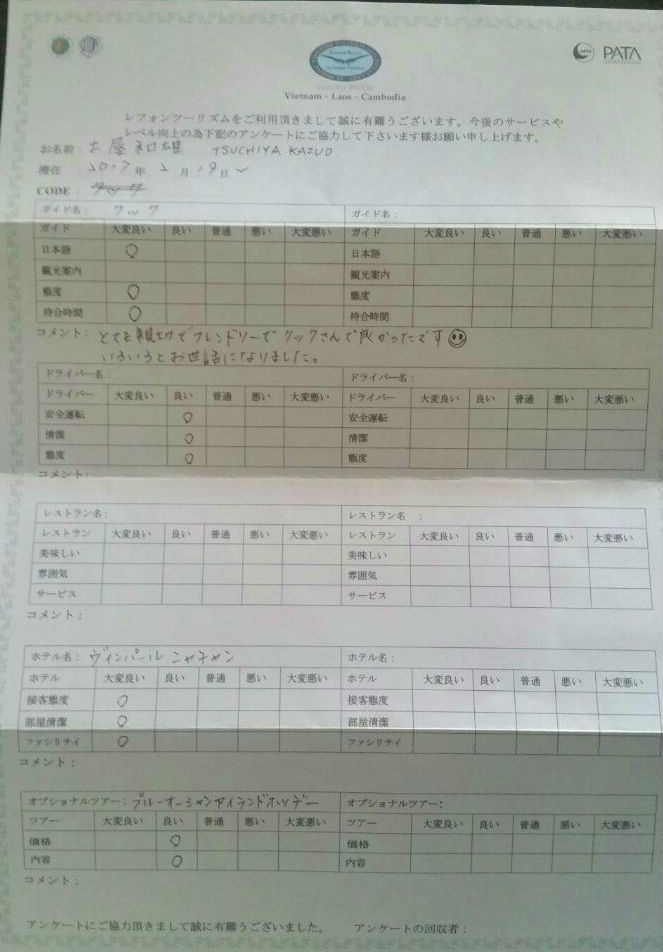 PATA
Vietnam - Laos - Cambodia
レフォンツーリズムをご利用頂きまして誠に有難うございます。今後のサービスや
レベル向上の為下記のアンケートにご協力して下さいます様お願い申し上げます。
お名前: 土屋和雄 TSUCHIYA KAZUO
滞在: 2017年2月19日
CODE:
ガイド名: クック ガイド名:
ガイド 大変良い 良い 普通 悪い 大変悪い ガイド 大変良い 良い 普通 悪い 大変悪い
日本語 ○ 日本語
観光案内 観光案内
態度 ○ 態度
待合時間 ○ 待合時間
コメント: とても親切でフレンドリーでクックさんで良かったです
いろいろとお世話になりました。
ドライバー名: ドライバー名:
ドライバー 大変良い 良い 普通 悪い 大変悪い ドライバー 大変良い 良い 普通 悪い 大変悪い
安全運転 ○ 安全運転
清潔 ○ 清潔
態度 ○ 態度
コメント:
レストラン名: レストラン名 :
レストラン 大変良い 良い 普通 悪い 大変悪い レストラン 大変良い 良い 普通 悪い 大変悪い
美味しい 美味しい
雰囲気 雰囲気
サービス サービス
コメント:
ホテル名: ヴィンパール ニャチャン ホテル名:
ホテル 大変良い 良い 普通 悪い 大変悪い ホテル 大変良い 良い 普通 悪い 大変悪い
接客態度 ○ 接客態度
部屋清潔 ○ 部屋清潔
ファシリテイ ○ ファシリテイ
コメント:
オプショナルツアー: ブルーオーシャンアイランドホリデー オプショナルツアー:
ツアー 大変良い 良い 普通 悪い 大変悪い ツアー 大変良い 良い 普通 悪い 大変悪い
価格 ○ 価格
内容 ○ 内容
コメント:
アンケートにご協力頂きまして誠に有難うございました。 アンケートの回収者: